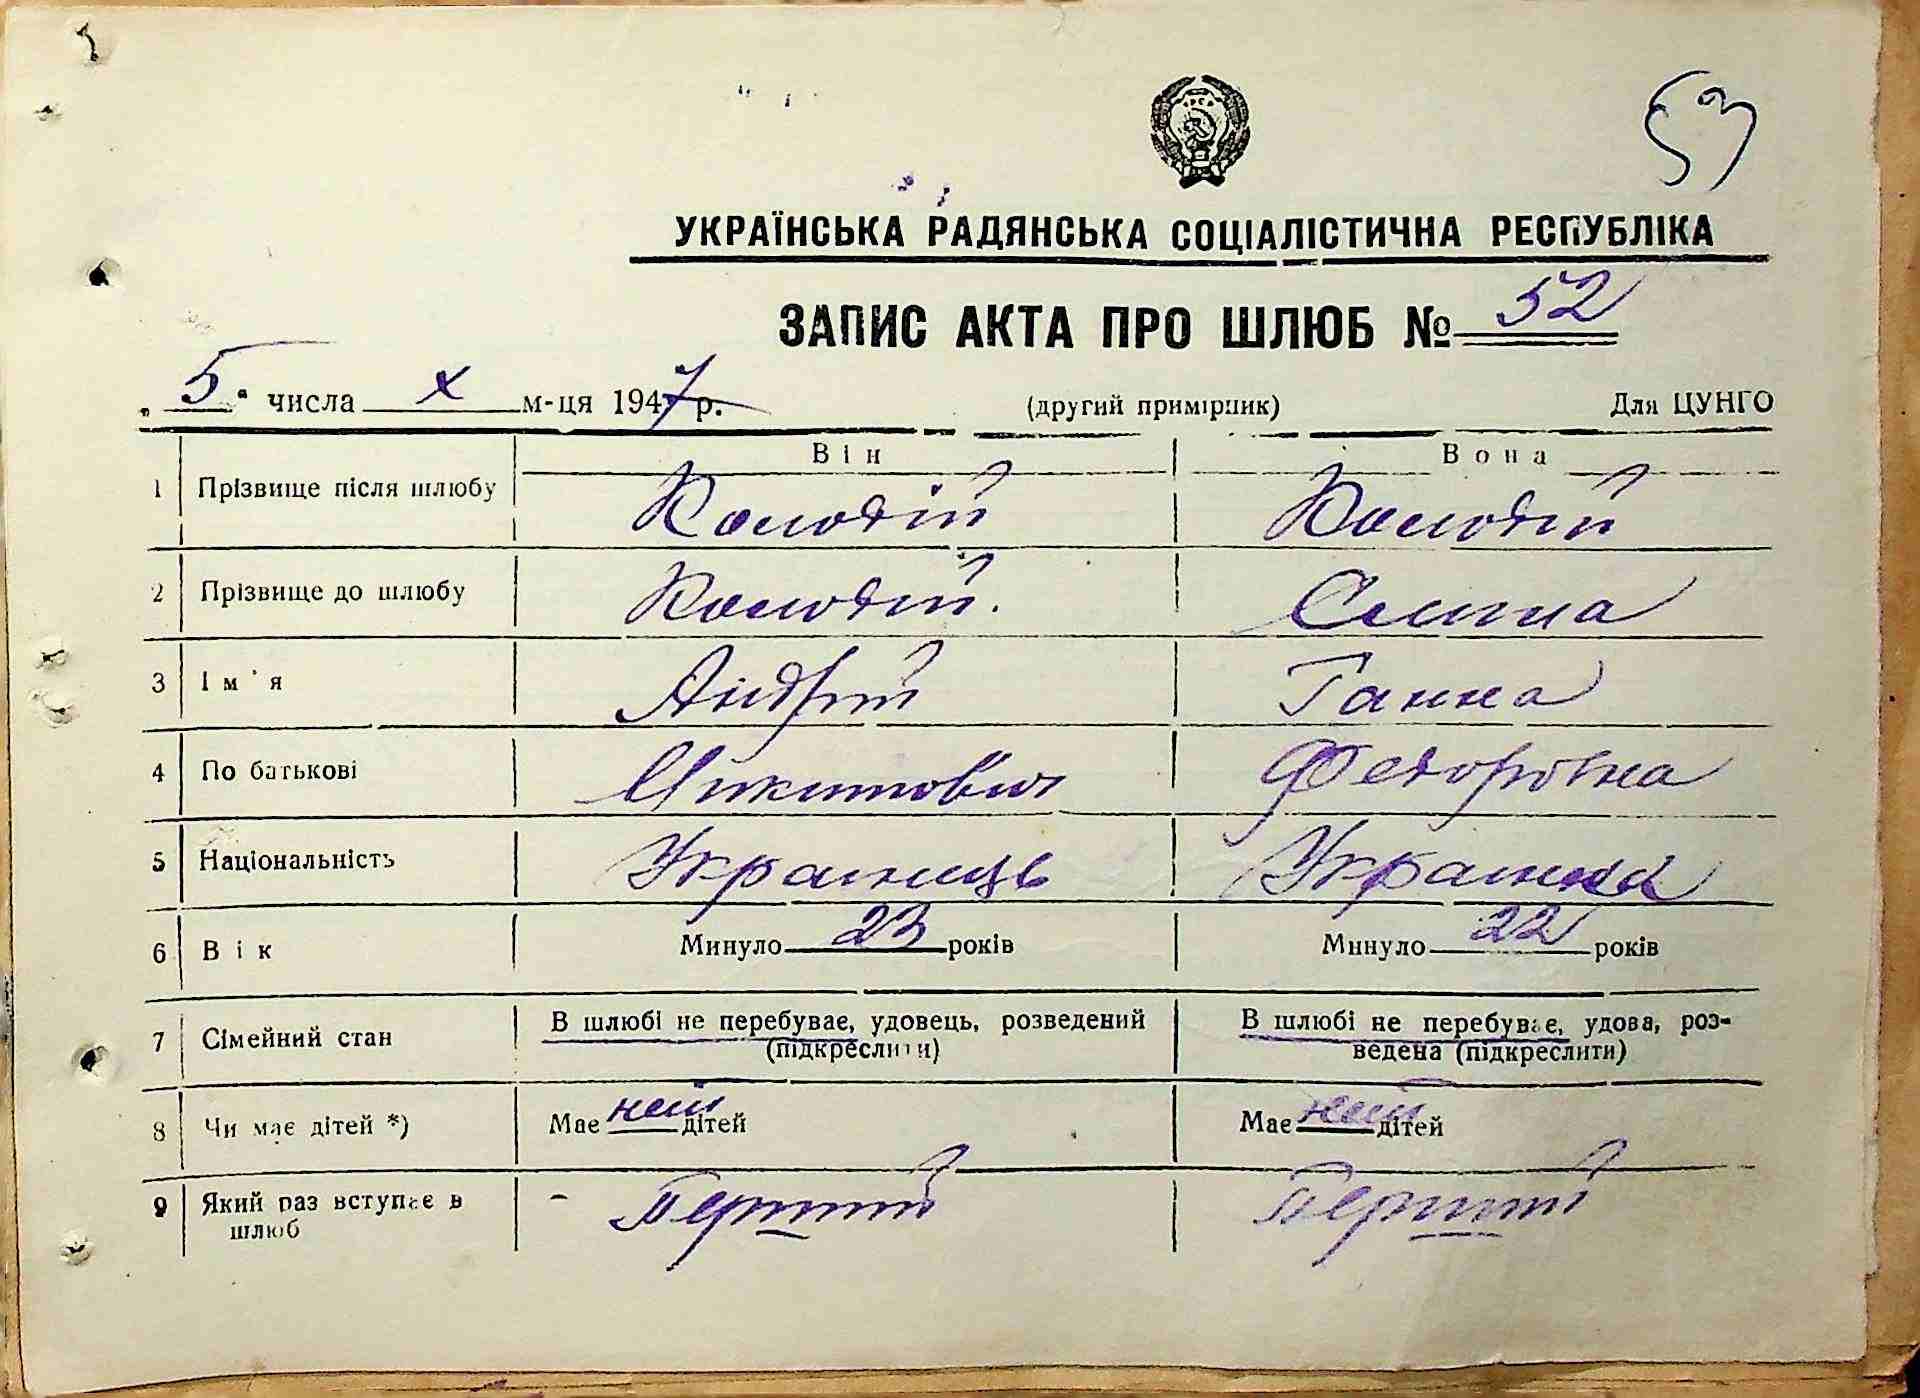 59
УКРАЇНСЬКА РАДЯНСЬКА СОЦІАЛІСТИЧНА РЕСПУБЛІКА
ЗАПИС АКТА ПРО ШЛЮБ № 52
„ 5 " числа X м-ця 1947 р. (другий примірник) Для ЦУНГО
Він Вона
1 Прізвище після шлюбу Колодій Колодій
2 Прізвище до шлюбу Колодій. Слипа
3 Ім'я Андрій Ганна
4 По батькові Микитович Федорівна
5 Національність Українець Українка
6 Вік Минуло 23 років Минуло 22 років
7 Сімейний стан В шлюбі не перебуває, удовець, розведений В шлюбі не перебуває, удова, роз-
(підкреслити) ведена (підкреслити)
8 Чи має дітей *) Має дітей Має дітей
9 Який раз вступає в Перший Перший
шлюб